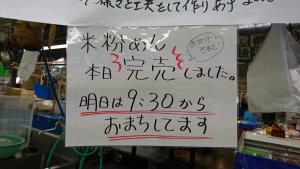 様々と工夫をして作りあげました
米粉めん
おかげさまで
本日完売しました。
明日は9:30から
おまちしてます